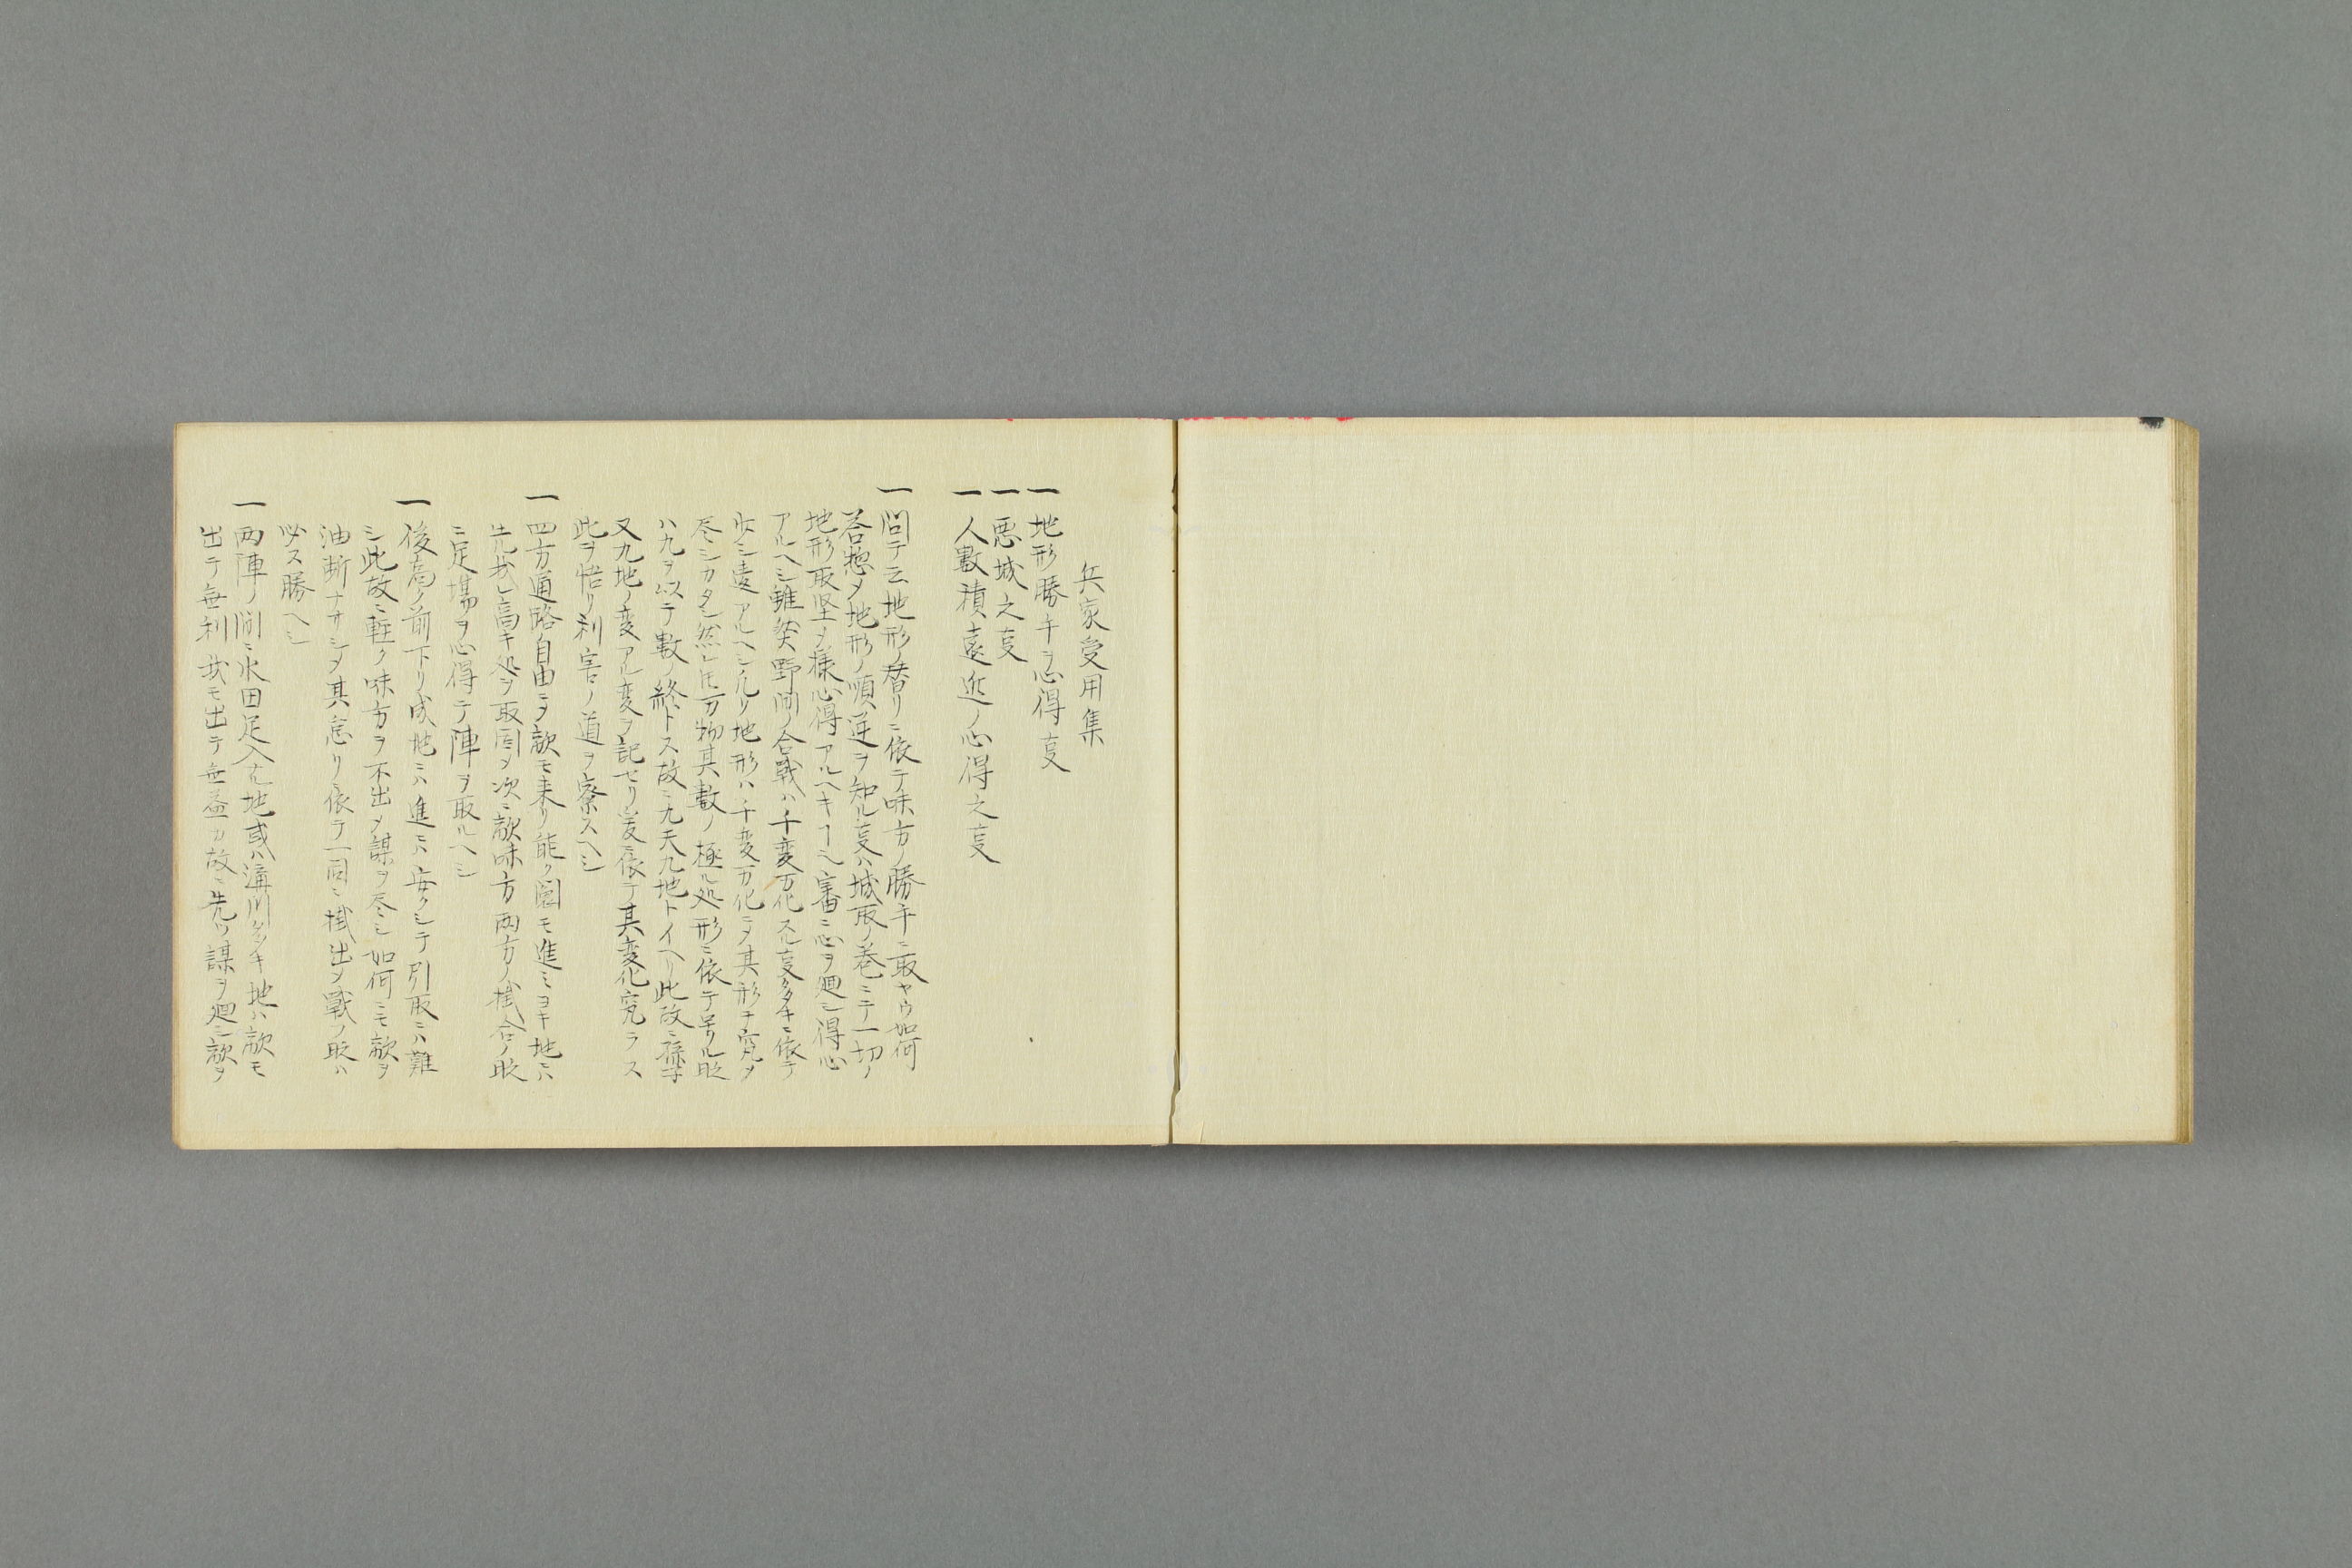 兵家受用集
一 地形勝手ヲ心得叓
一 悪城之叓
一 人數積遠近ノ心得之叓
一 問テ云地形ノ替リニ依テ味方ノ勝手ニ取ヤウ如何
答惣〆地形ノ順逆ヲ知ル叓ハ城取ノ巻ニテ一切ノ
地形取堅メ様心得アルヘキヿヘ審ニ心ヲ廻シ得心
アルヘシ雖然野間ノ合戰ハ千変万化スル叓多キニ依テ
少シ違アルヘシ凡ソ地形ハ千変万化ニ〆其形チ究メ
尽シカタシ然レ𪜈万物其數ノ極ル処形ニ依テ呈ル時
ハ九ヲ以テ數ノ終トス故ニ九天九地トイヘリ此故ニ孫子
又九地ノ変アル変ヲ記セリ爰ニ依テ其変化究ラス
此ヲ悟リ利害ノ道ヲ察スヘシ
一 四方通路自由ニ〆敵モ来リ能ク圍モ進ミヨキ地ニハ
先我レ高キ処ヲ取固メ次ニ敵味方両方ノ掛合ノ時
ニ足場ヲ心得テ陣ヲ取ルヘシ
一 後高ク前下リ成地ニハ進ニハ安クシテ引取ニハ難
シ此故ニ軽ク味方ヲ不出〆謀ヲ尽シ如何ニモ敵ヲ
油断ナサシメ其怠リニ依テ一同ニ掛出〆戰フ時ハ
必ス勝ヘシ
一 両陣ノ間ニ水田足入ナル地或ハ溝川多キ地ハ敵モ
出テ無利我モ出テ無益カ故ニ先ツ謀ヲ廻シ敵ヲ